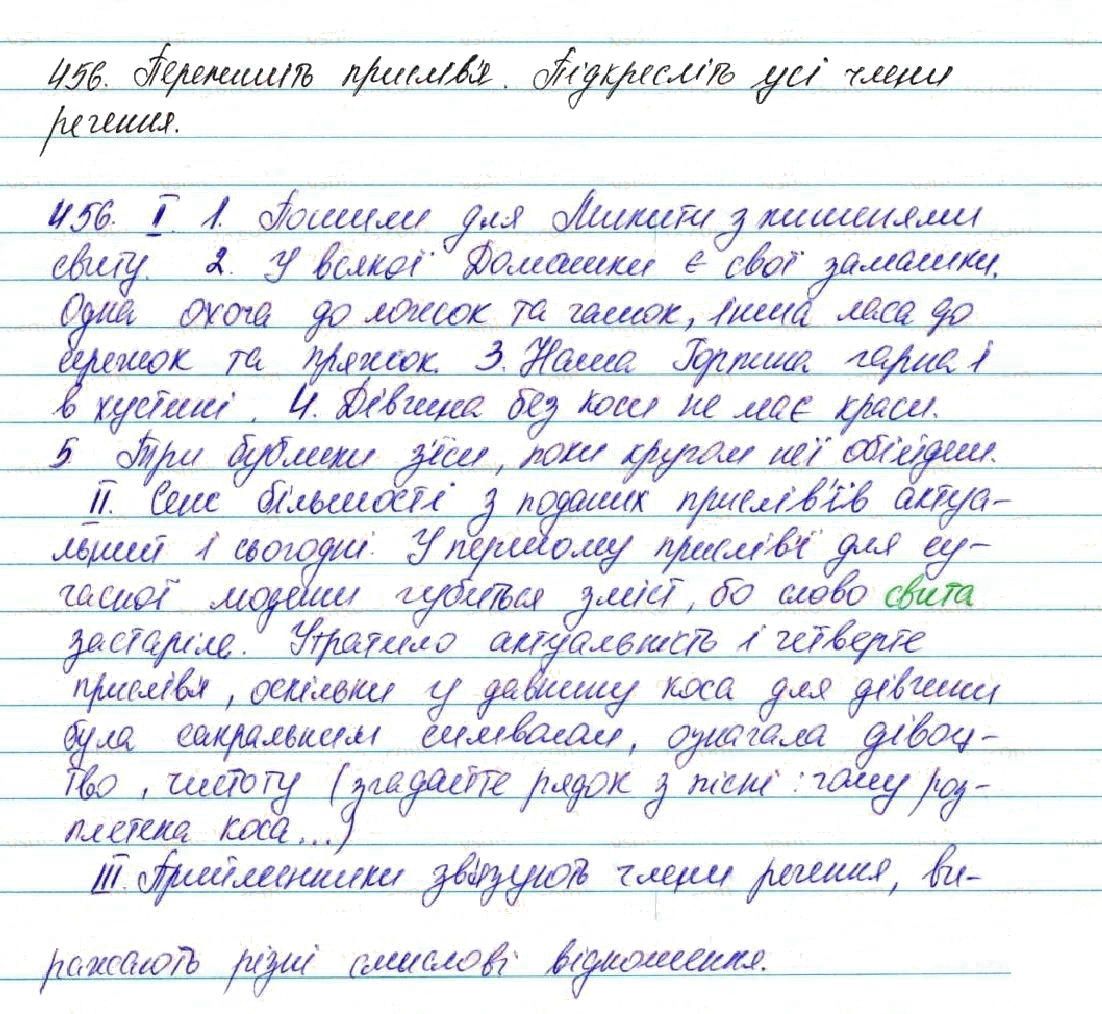 456. Перепишіть прислів'я. Підкресліть усі члени
речення.
456. I. 1. Пошили для Микити з кишенями
свиту. 2. У всякої Домашки є свої замашки.
Одна охоча до ложок та чашок, інша ласа до
сережок та пряжок. 3. Наша Горпина гарна і
в хустині. 4. Дівчина без коси не має краси.
5. Три бублики з'їси, поки кругом неї обійдеш.
II. Сенс більшості з поданих прислів'їв актуа-
льний і сьогодні. У першому прислів'ї для су-
часної людини губиться зміст, бо слово свита
застаріле. Утратило актуальність і четверте
прислів'я, оскільки у давнину коса для дівчини
була сакральним символом, означала дівоц-
тво, чистоту (згадайте рядок з пісні: чому роз-
плетена коса...)
III. Прийменники зв'язують члени речення, ви-
ражають різні смислові відношення.